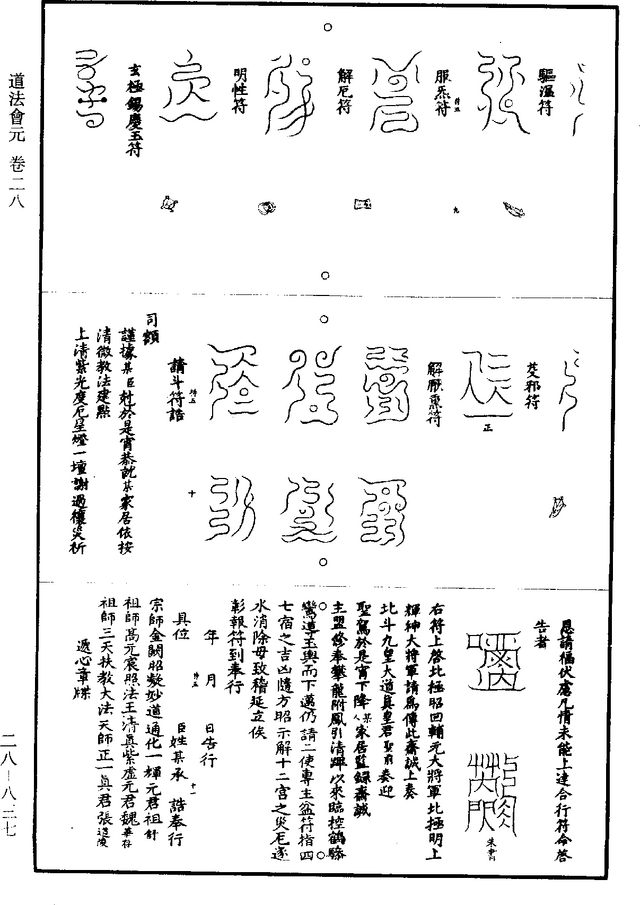 道法會元 卷二八
驅瘟符
服炁符
解厄符
明性符
玄極錫慶玉符
九
芟邪符
正
解厭禀符
請斗符誥
十
司額
謹據某臣對於是宵恭就某家居依按
清微教法建點
上清紫光度厄星燈一壇謝過禳災祈
恩請福伏慮凡情未能上達合行符命啓
告者
朱書
右符上啓北極昭回輔元大將軍北極明上
輝神大將軍請爲傳此齋誠上奏
北斗九皇大道真皇君聖前奏迎
聖駕於是宵下降某人家居監錄齋誠
主盟修奉攀龍附鳳引清蹕以來臨控鶴驂
鸞導玉輿而下邁仍請二使專主盆符指四
七宿之吉凶隨方昭示解十二宮之災厄逐
水消除毋致稽延立俟
彰報符到奉行
年 月 日告行
具位 臣姓某承 誥奉行
十一
宗師金闕昭凝妙道通化一輝元君祖舒
祖師高元宸照法王清真紫虛元君魏華存
祖師三天扶教大法天師正一真君張道陵
遞心章牒
二八-八二七